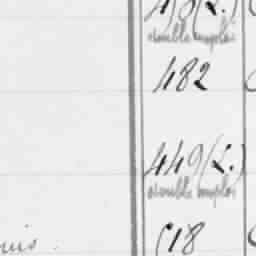 double emploi
482
449(L.)
double emploi
618